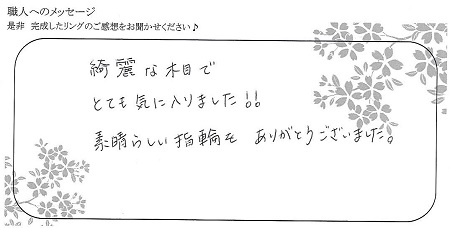 職人へのメッセージ
是非 完成したリングのご感想をお聞かせください♪
綺麗な木目で
とても気に入りました!!
素晴らしい指輪を ありがとうございました。